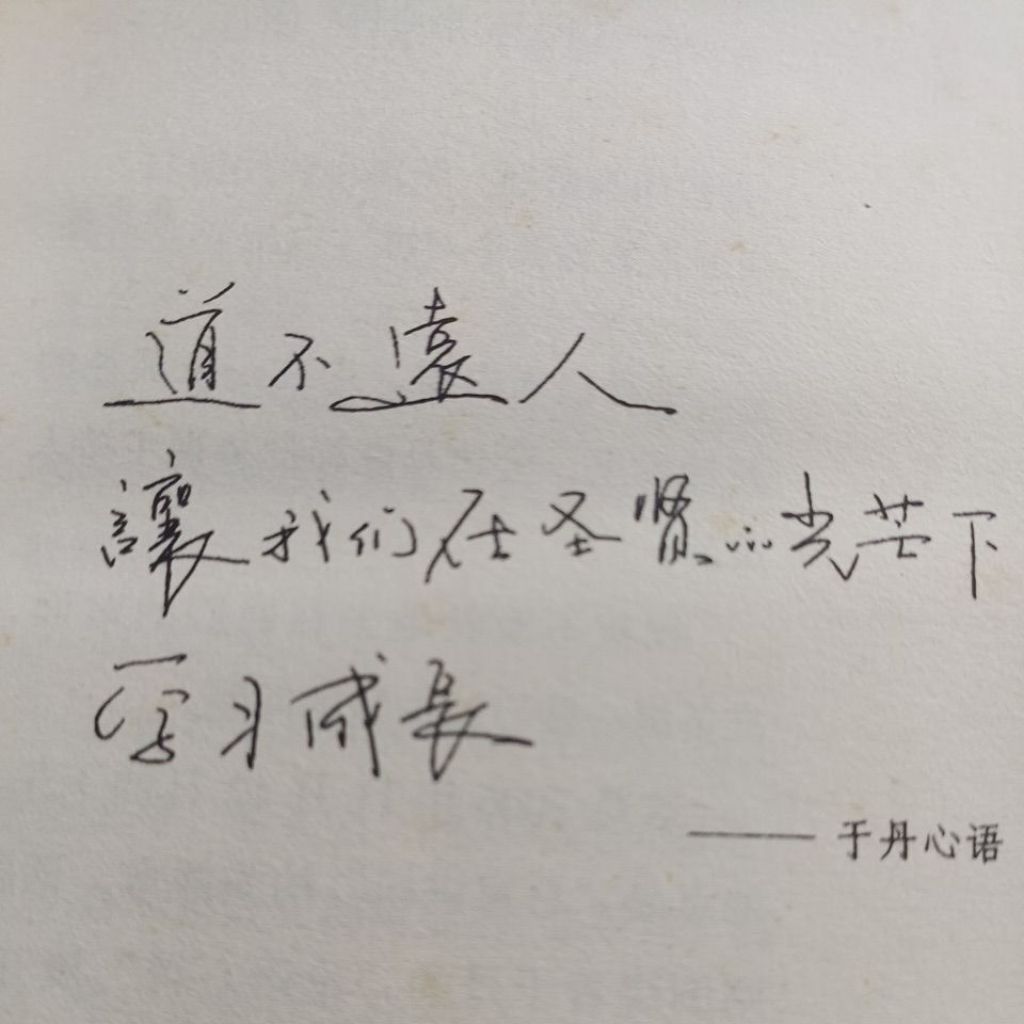 道不遠人
讓我们在圣贤的光芒下
学习成长
——于丹心语